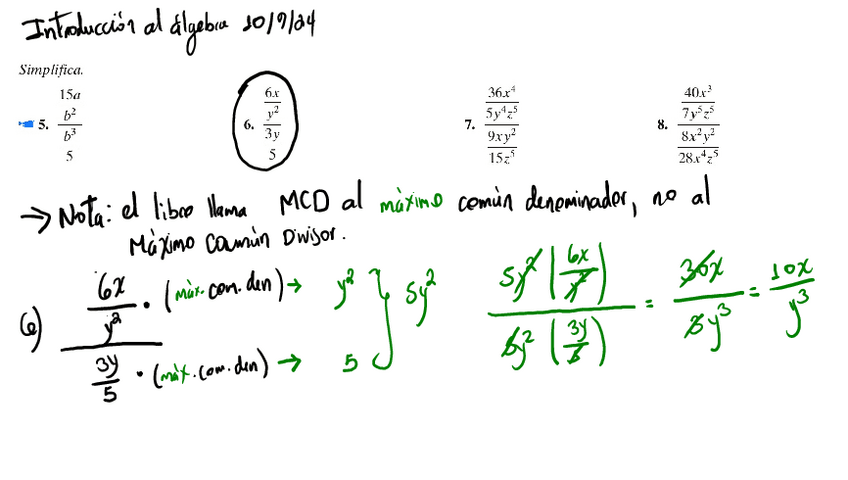 Introducción al álgebra 10/9/24
Simplifica.
5. 15a / b² / b³ / 5
6. 6x / y² / 3y / 5
7. 36x⁴ / 5y⁴z⁵ / 9xy² / 15z⁵
8. 40x³ / 7y⁵z⁵ / 8x²y² / 28x⁴z⁵
→ Nota: el libro llama MCD al màximo común denominador, no al
Máximo Común Divisor.
6) 6x / y² · (màx. com. den) → y² } 5y² 5y² (6x / y²) / 5y² (3y / 5) = 30x / 3y³ = 10x / y³
3y / 5 · (màx. com. den) → 5